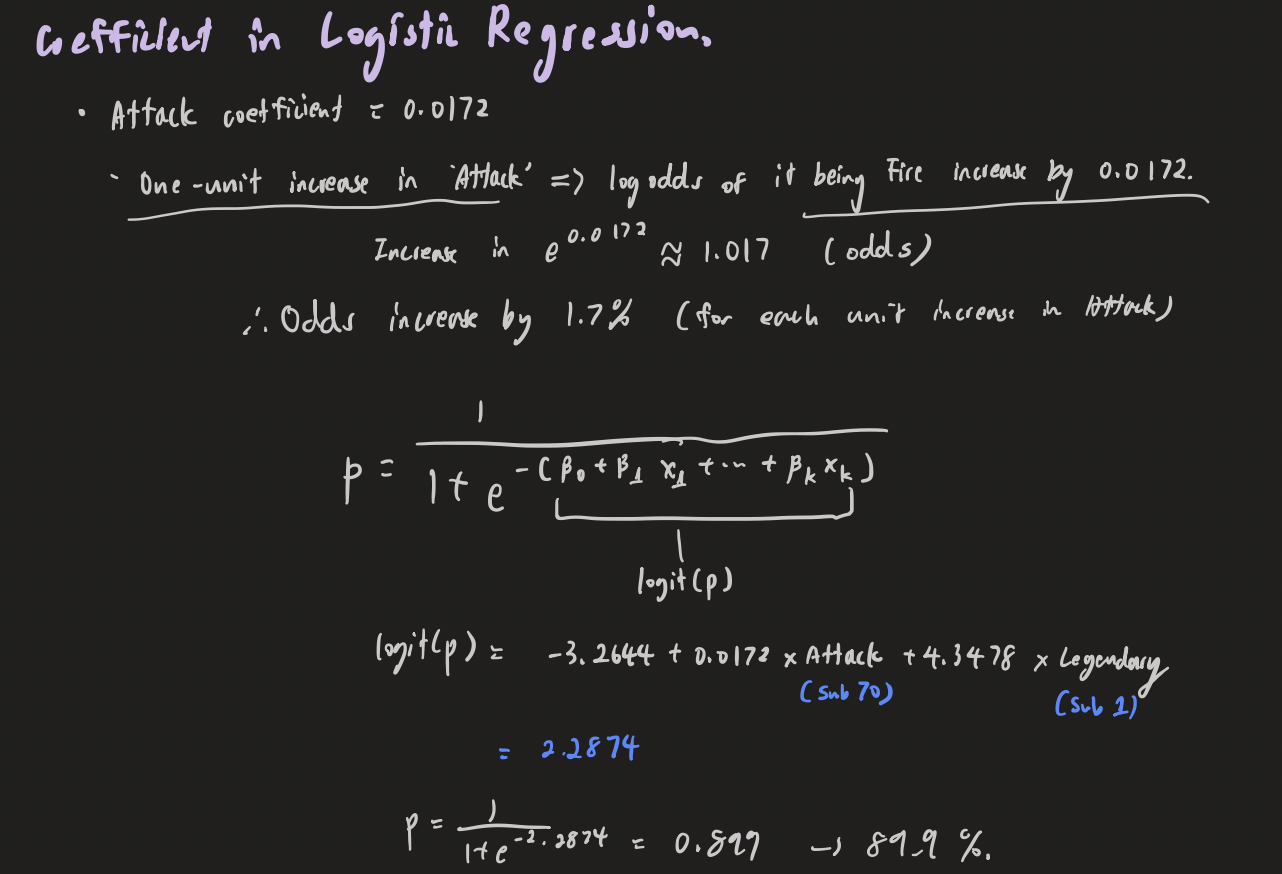 Coefficient in Logistic Regression.
• Attack coefficient = 0.0172
- One-unit increase in 'Attack' => log odds of it being Fire increase by 0.0172.
Increase in e^0.0172 ≈ 1.017 (odds)
∴ Odds increase by 1.7% (for each unit increase in Attack)
p = 1 / (1 + e^-(β₀ + β₁ x₁ + ... + βₖ xₖ))
logit(p)
logit(p) = -3.2644 + 0.0172 × Attack + 4.3478 × Legendary
(sub 70) (sub 1)
= 2.2874
p = 1 / (1 + e^-2.2874) = 0.899 → 89.9 %.